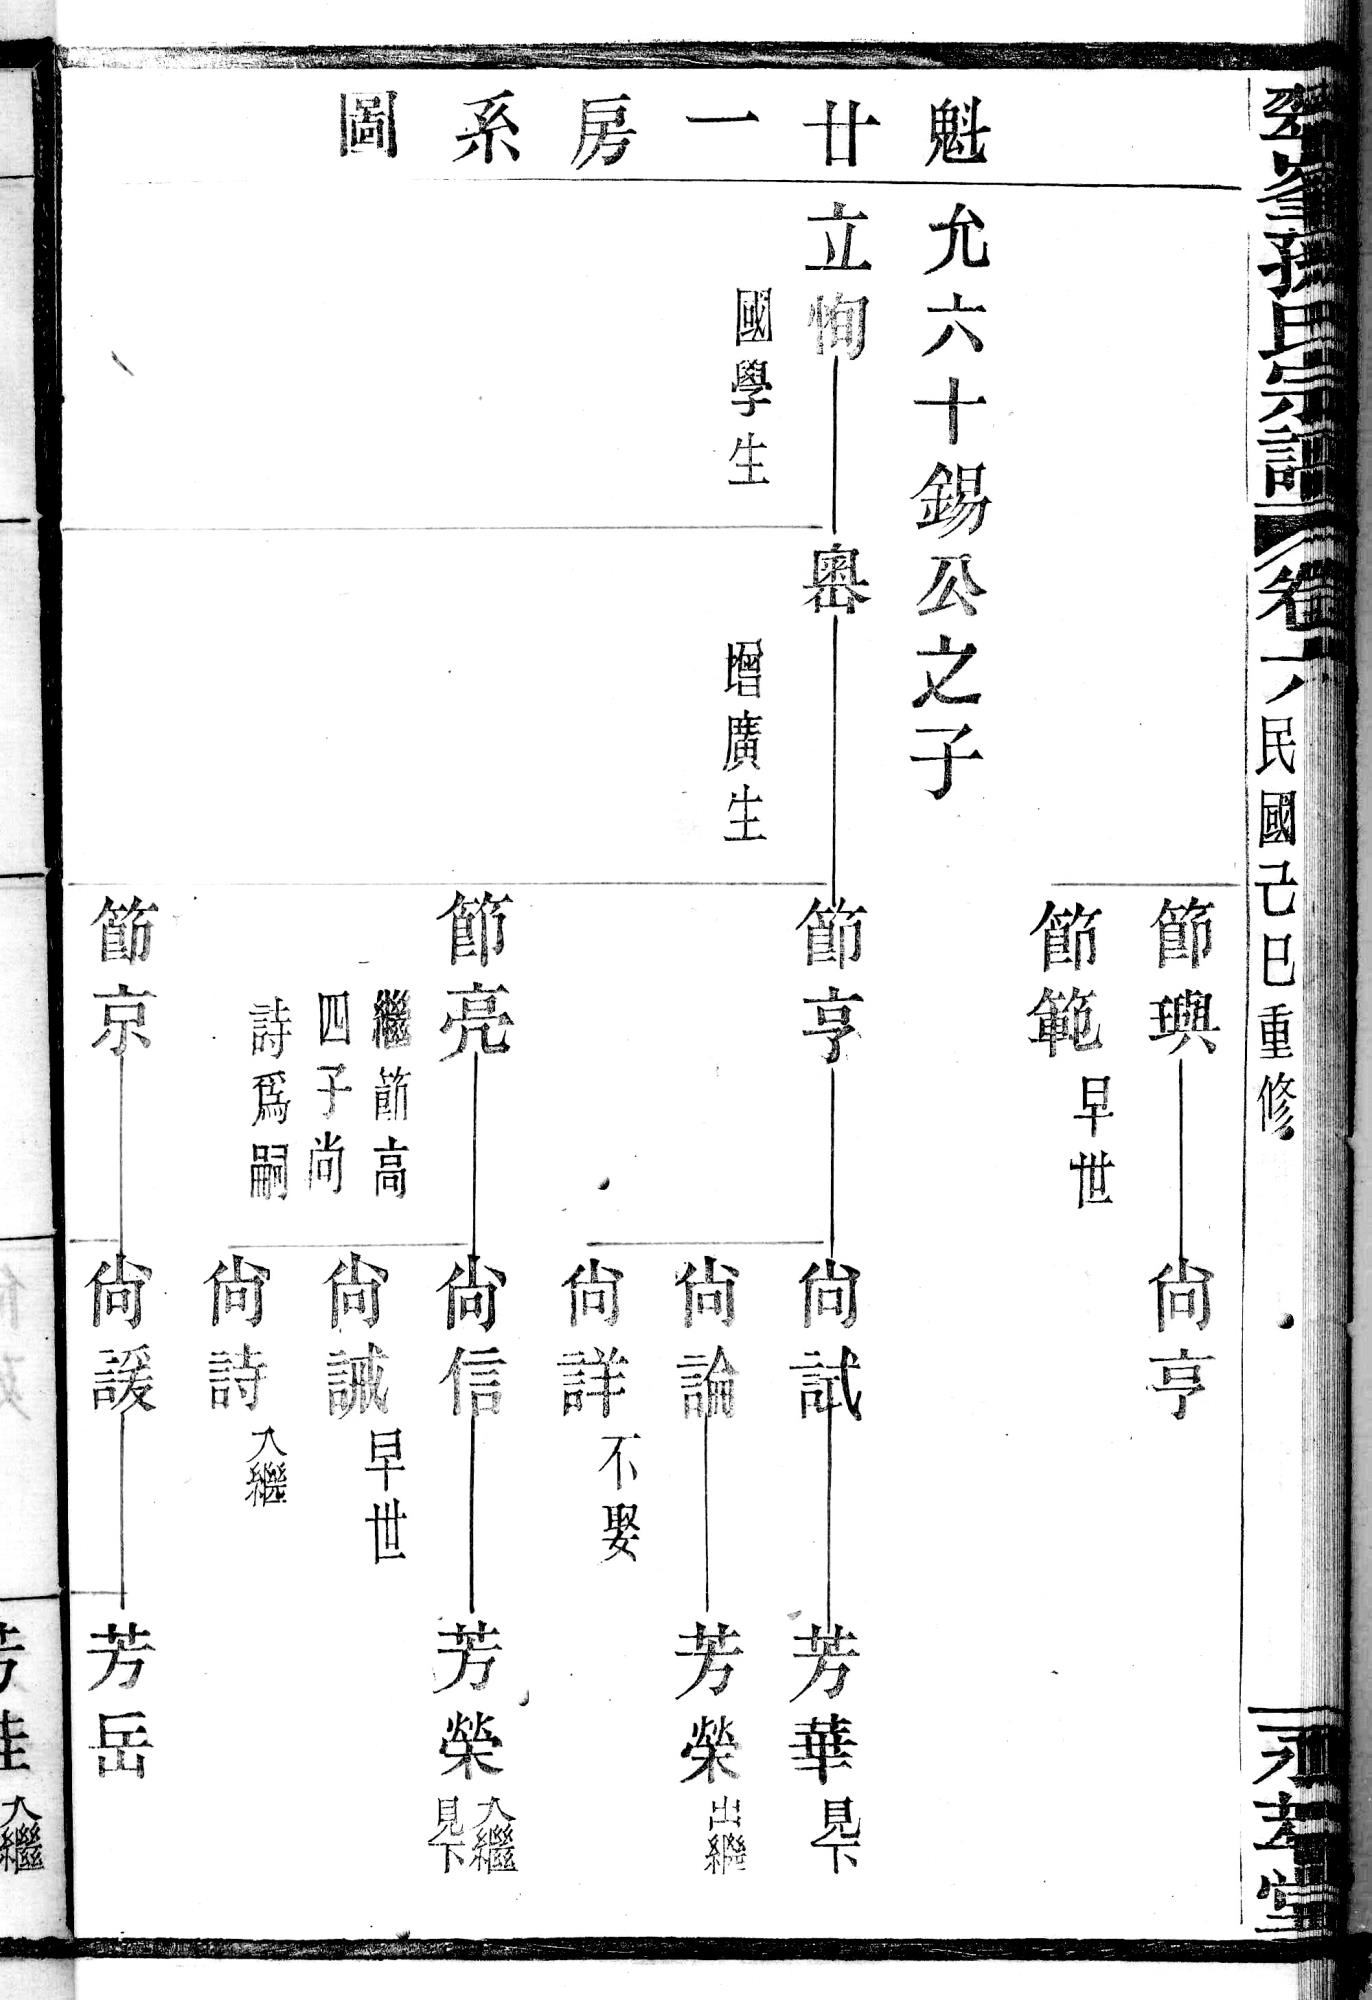 孫氏宗譜
卷
民國己巳重修
永
堂
魁廿一房系圖
允六十錫公之子
立恂
國學生
嶴
增廣生
節璵
節範
早世
節亨
節亮
繼節高
四子尚
詩為嗣
節京
尙亨
尙試
尙論
尙詳
不娶
尙信
尙誡
早世
尙詩
入繼
尙諼
芳華
見下
芳榮
出繼
芳榮
入繼
見下
芳岳
入繼